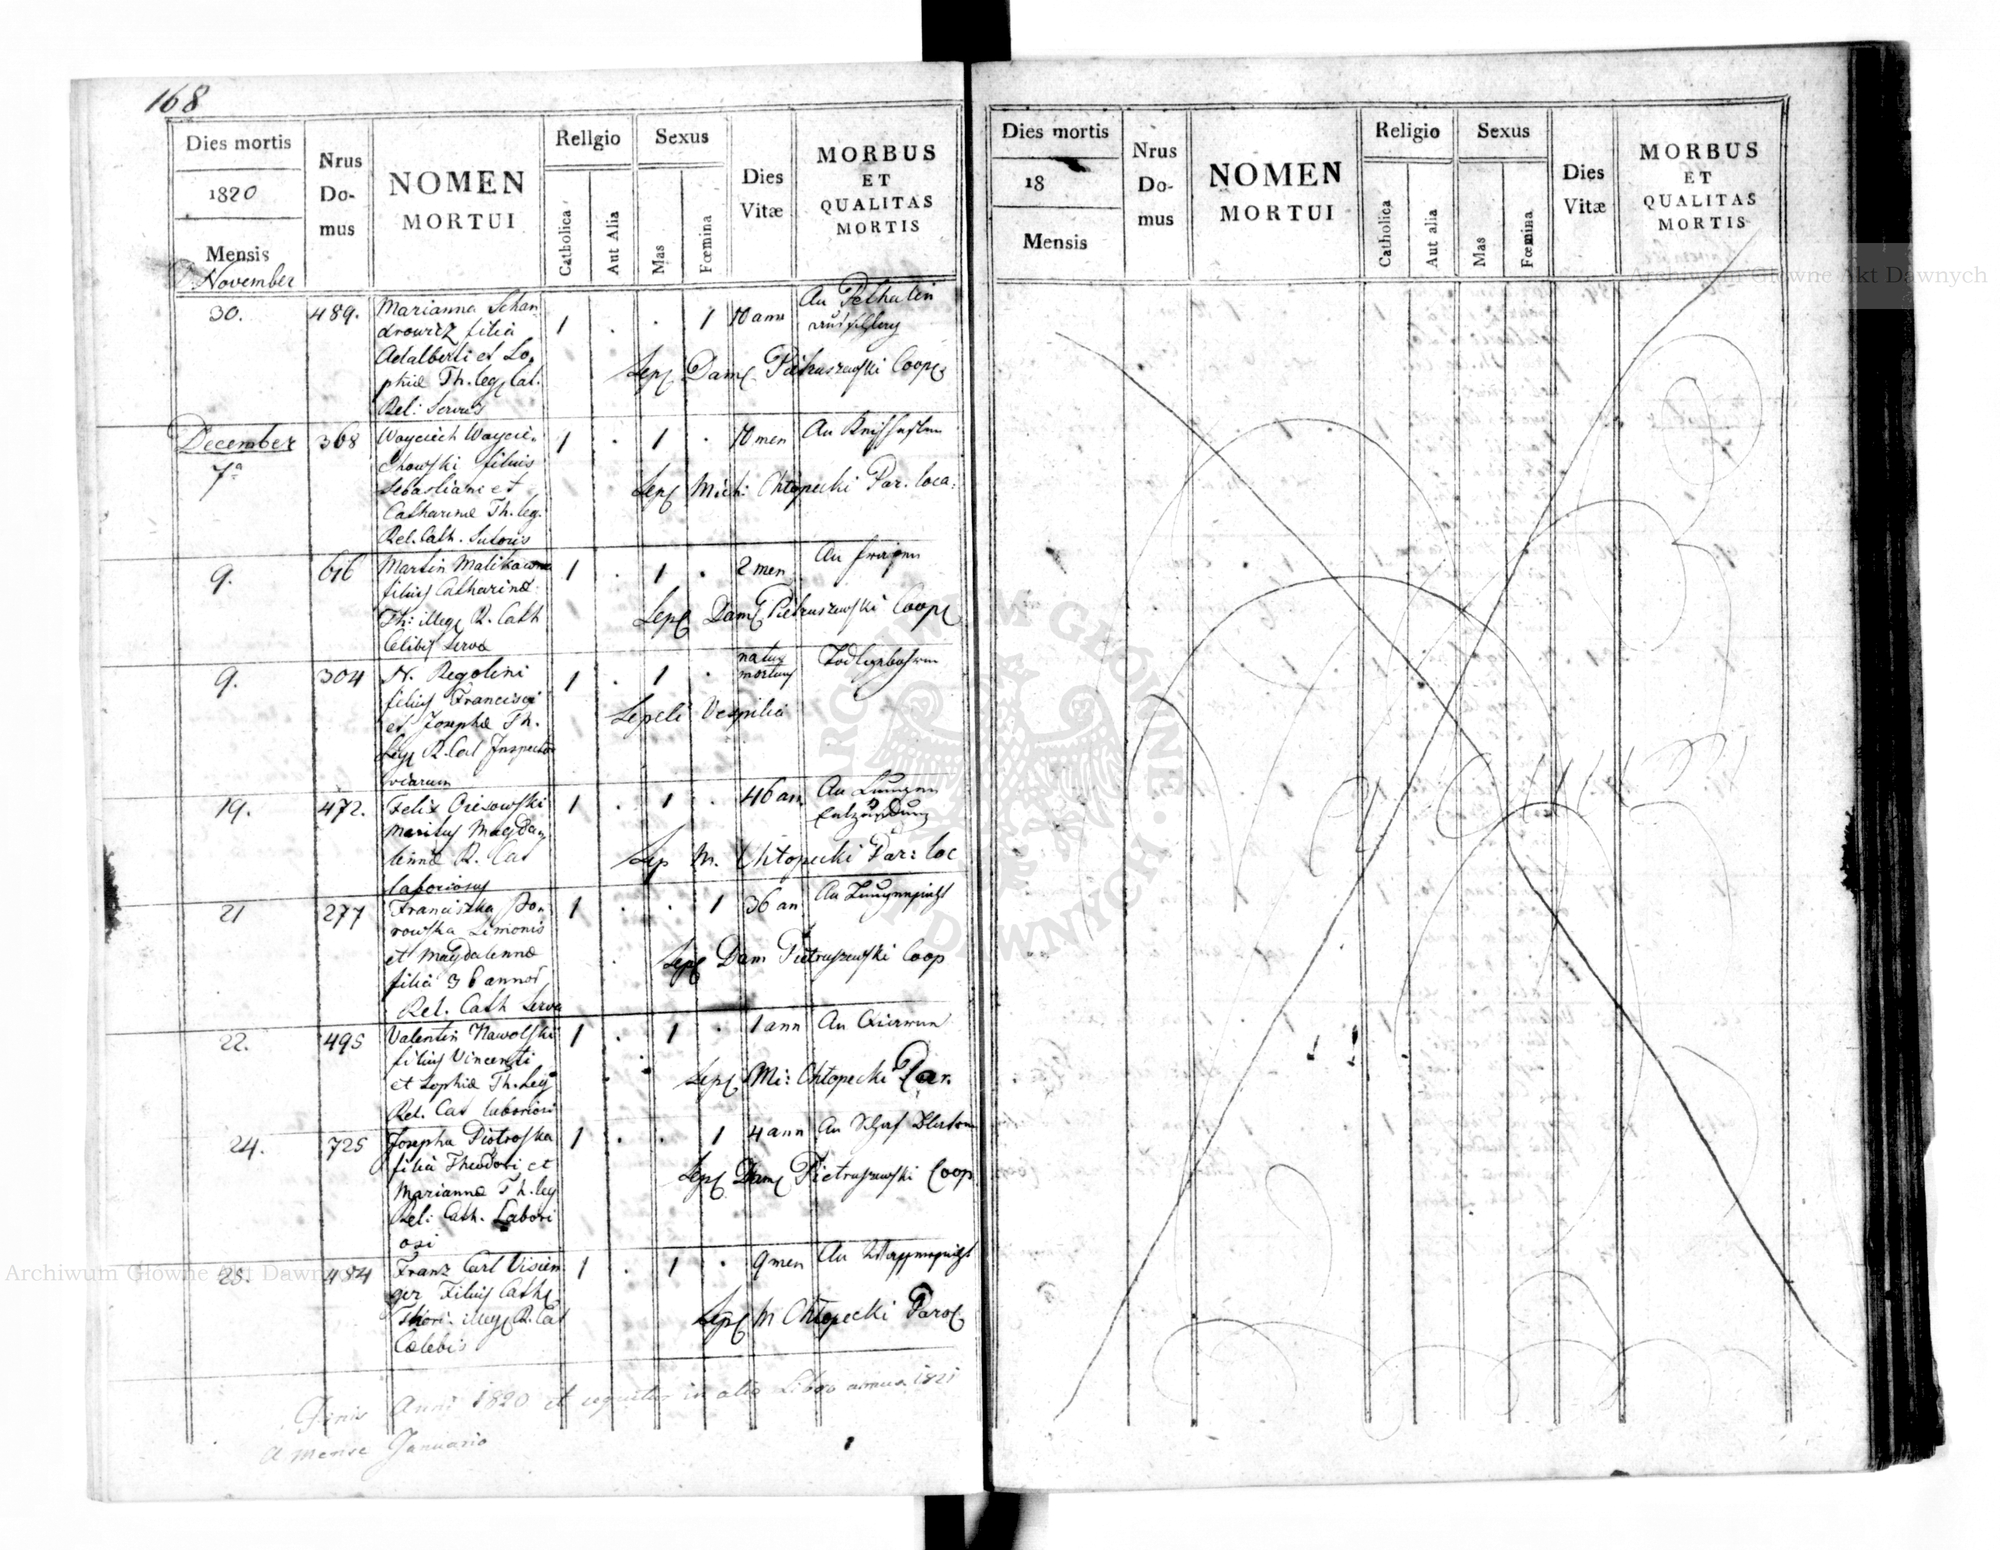 168
Dies mortis
1820
Mensis
Nrus
Do-
mus
NOMEN
MORTUI
Rellgio
Catholica
Aut Alia
Sexus
Mas
Fœmina
Dies
Vitæ
MORBUS
ET
QUALITAS
MORTIS
November
30. 489. Marianna Schan
drowicz filia
Adalberti et So,
phiæ Th. leg. Cat.
Rel: Servus
1 . . 1 10 ann An
Sep. Dam. Pietruszewski Coop.
December
7ª 368 Woyciech Woycie,
chowski filius
Sebastiani et
Catharinæ Th. leg.
Rel. Cath. Sutoris
1 . 1 . 10 men An
Sep. Mich: Chłopecki Par. loca:
9. 616 Martin Malikowna
filius Catharinæ
Th: illeg. R. Cath
Celibis Serva
1 . 1 . 2 men An fraigen
Sep. Dam. Pietruszewski Coop.
9. 304 N. Regolini
filius Francisci
et Josephæ Th.
Leg. R. Cat Inspector
viarum
1 . 1 . natus
mortuus
Todtgebohren
Sepeli Vespilio
19. 472. Felix Grisowski
Maritus Magda
lennæ R. Cat
laboriosus
1 . 1 . 46 an An Lungen
Entzündung
Sep M. Chłopecki Par: loc
21 277 Franciszka Bo,
rowska Simonis
et Magdalennæ
filia 36 annor
Rel. Cath Serva
1 . . 1 36 an An Lungensucht
Sep. Dam Pietruszewski Coop
22. 495 Valentin Nawolski
filius Vincenti
et Sophiæ Th. Leg
Rel. Cat laboriosi
1 . 1 . 1 ann An
Sep. Mi: Chłopecki Par.
24. 725 Josepha Piotroska
filia Theodori et
Mariannæ Th. leg
Rel: Cath. Labori
osi
1 . . 1 4 ann An
Sep. Dam. Pietruszewski Coop
28. 484 Franz Carl Visien
ger Filius Cath.
Thori. illeg. R. Cat
Cœlebis
1 . 1 . 9 men An
Sep. M Chłopecki Paro.
Finis Anni 1820 et sequitur in alio Libro annus 1821
a mense Januario
Dies mortis
18
Mensis
Nrus
Do-
mus
NOMEN
MORTUI
Religio
Catholica
Aut alia
Sexus
Mas
Fœmina
Dies
Vitæ
MORBUS
ET
QUALITAS
MORTIS
Archiwum Główne Akt Dawnych
Archiwum Główne Akt Dawnych
ARCHIWUM GŁÓWNE AKT DAWNYCH